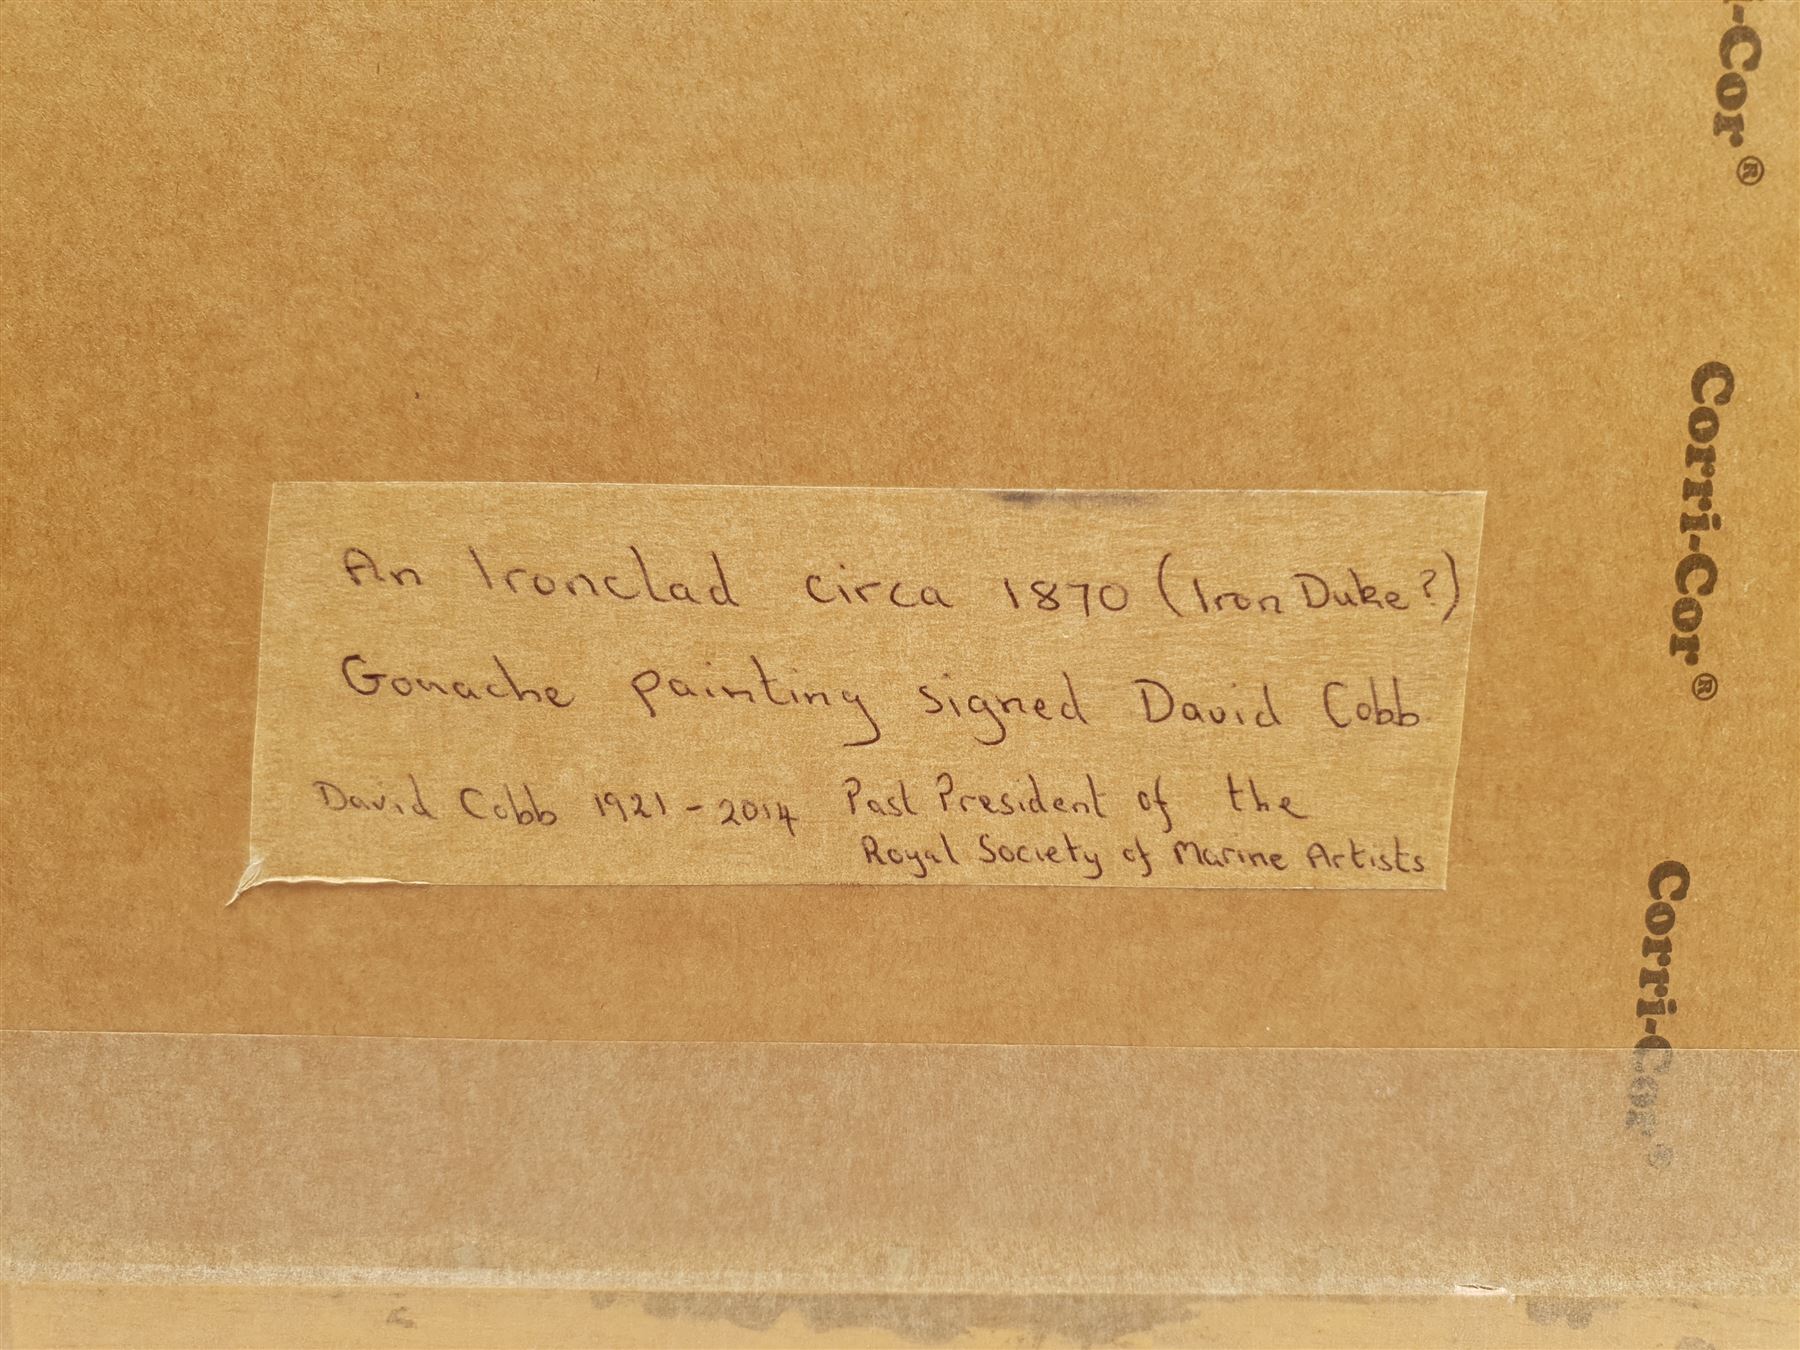 An Ironclad circa 1870 (Iron Duke?)
Gouache painting signed David Cobb
David Cobb 1921-2014 Past President of the
Royal Society of Marine Artists
i-Cor®
Corri-Cor®
Corri-Cor®